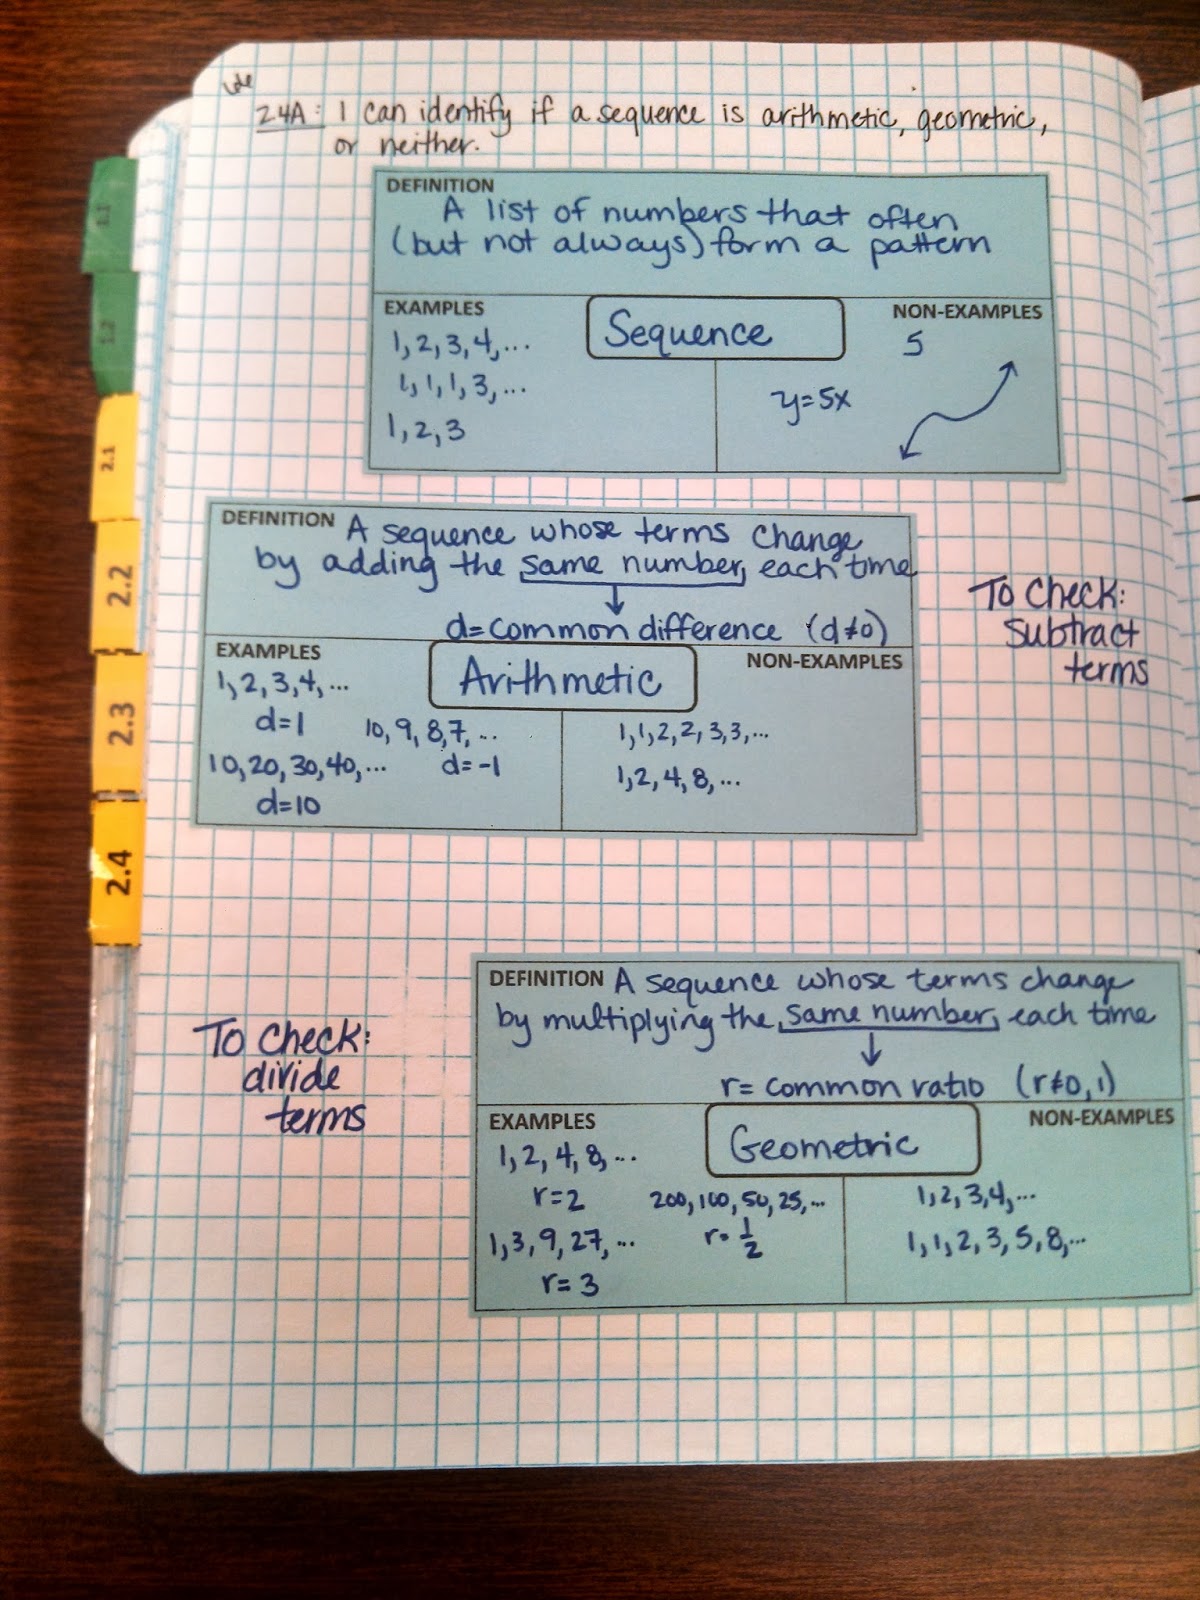 2.4A: I can identify if a sequence is arithmetic, geometric,
or neither.
DEFINITION
A list of numbers that often
(but not always) form a pattern
EXAMPLES
1, 2, 3, 4, ...
1, 1, 1, 3, ...
1, 2, 3
Sequence
NON-EXAMPLES
5
y=5x
DEFINITION A sequence whose terms change
by adding the same number, each time
d=common difference (d≠0)
EXAMPLES
1, 2, 3, 4, ...
d=1
10, 9, 8, 7, ...
d=-1
10, 20, 30, 40, ...
d=10
Arithmetic
NON-EXAMPLES
1, 1, 2, 2, 3, 3, ...
1, 2, 4, 8, ...
To check:
subtract
terms
To check:
divide
terms
DEFINITION A sequence whose terms change
by multiplying the same number, each time
r= common ratio (r≠0, 1)
EXAMPLES
1, 2, 4, 8, ...
r=2
200, 100, 50, 25, ...
r=1/2
1, 3, 9, 27, ...
r=3
Geometric
NON-EXAMPLES
1, 2, 3, 4, ...
1, 1, 2, 3, 5, 8, ...
1.1
1.2
2.1
2.2
2.3
2.4